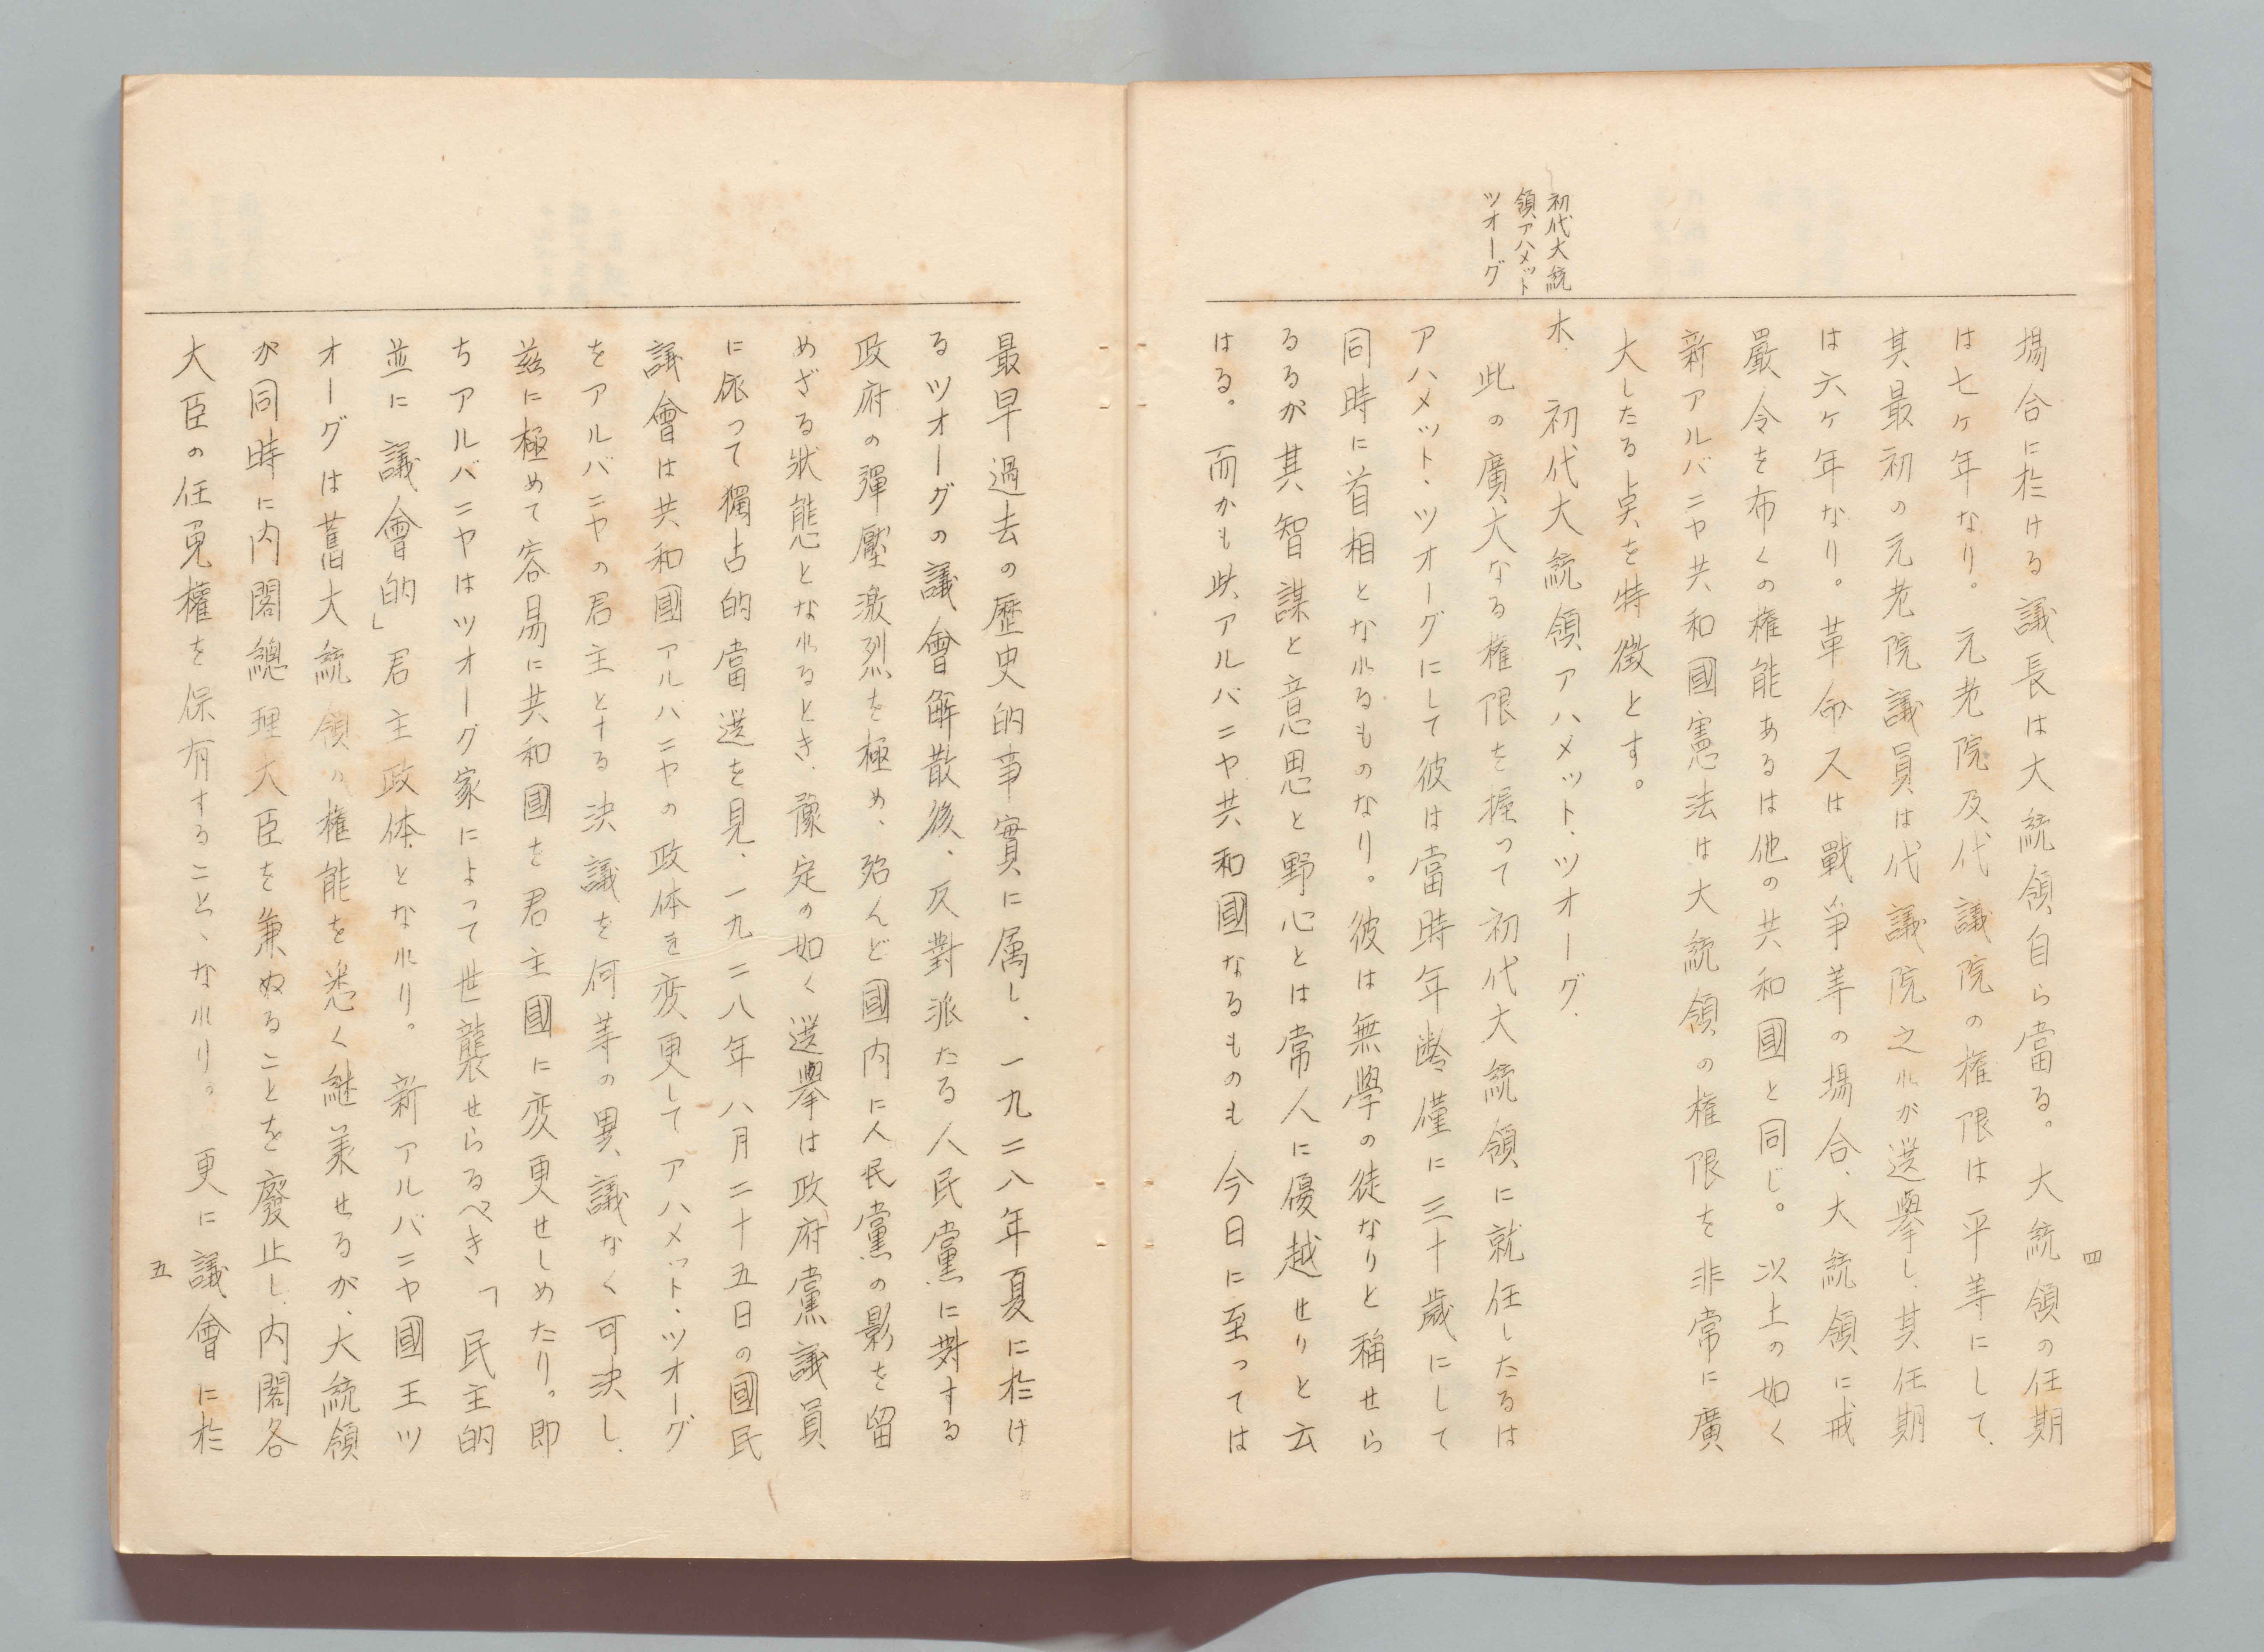 四
場合に於ける議長は大統領自ら當る。大統領の任期
は七ヶ年なり。元老院及代議院の権限は平等にして、
其最初の元老院議員は代議院之れが選擧し、其任期
は六ヶ年なり。革命又は戰爭等の場合、大統領に戒
嚴令を布くの権能あるは他の共和國と同じ。以上の如く
新アルバニヤ共和國憲法は大統領の権限を非常に廣
大したる点を特徴とす。
初代大統
領、アハメット
ツオーグ
ホ、初代大統領、アハメット、ツオーグ、
此の廣大なる権限を握って初代大統領に就任したるは
アハメット、ツオーグにして彼は當時年齢僅に三十歳にして
同時に首相となれるものなり。彼は無學の徒なりと稱せら
るるが其智謀と意思と野心とは常人に優越せりと云
はる。而かも此アルバニヤ共和國なるものも今日に至っては
最早過去の歴史的事實に属し、一九二八年夏に於け
るツオーグの議會解散後、反對派たる人民黨に對する
政府の彈壓激烈を極め、殆んど國内に人民黨の影を留
めざる狀態となれるとき、豫定の如く選擧は政府黨議員
に依って獨占的當選を見、一九二八年八月二十五日の國民
議會は共和國アルバニヤの政体を変更してアハメット、ツオーグ
をアルバニヤの君主とする決議を何等の異議なく可決し、
茲に極めて容易に共和國を君主國に変更せしめたり。即
ちアルバニヤはツオーグ家によって世襲せらるべき「民主的
並に議會的」君主政体となれり。新アルバニヤ國王ツ
オーグは舊大統領の権能を悉く継承せるが、大統領
が同時に内閣總理大臣を兼ぬることを廢止し、内閣各
大臣の任免權を保有することゝなれり。更に議會に於
五